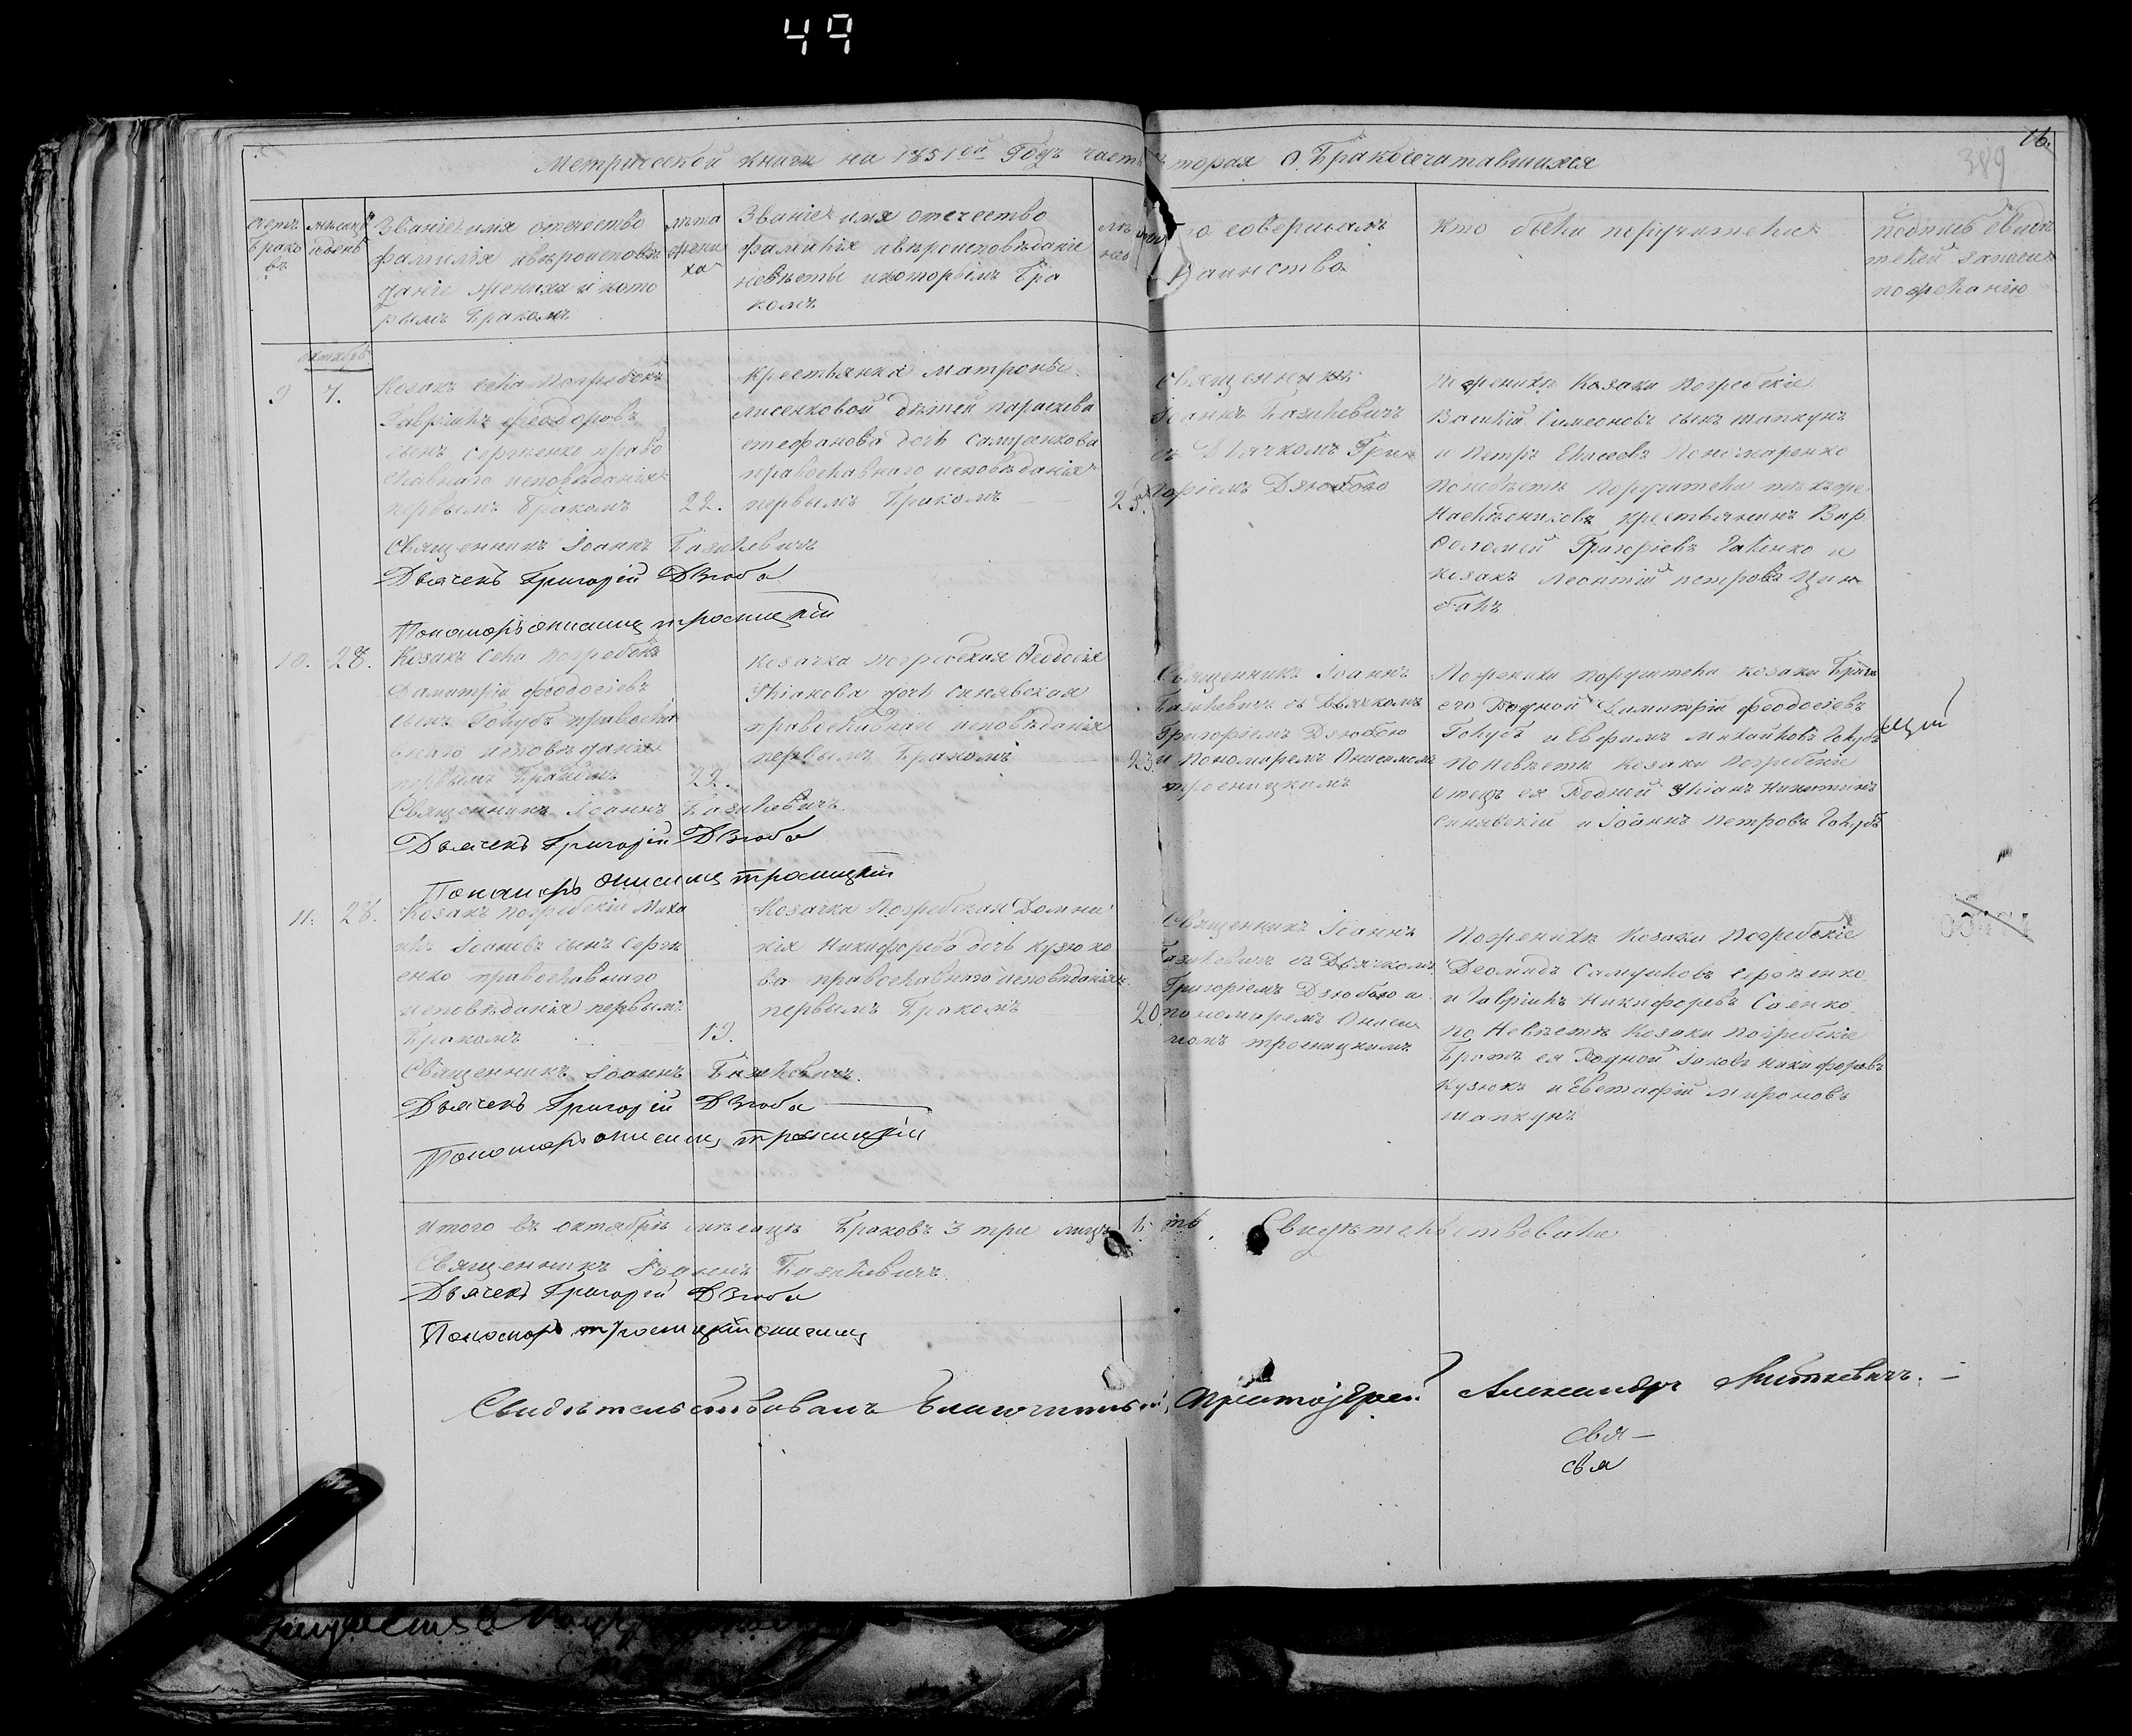 49
16.
389
Метрической книги на 1851ой Годъ часть вторая о Бракосочетавшихся
счетъ браковъ
месяцъ и день
Званiе имя отечество
фамилiя и вѣроисповѣ
данiе жениха и кото
рымъ бракомъ
лѣта
жени
ха
Званiе имя отечество
фамилiя и вѣроисповѣданiе
невѣсты и которымъ бра
комъ
Кто совершалъ
Таинство
Кто были поручители
Подпись свидѣ
телей записи
по желанiю
октябрь
9
7.
Козакъ села Погребокъ
Гаврiилъ Феодоровъ
сынъ Сергiенко право
славнаго исповѣданiя
первымъ бракомъ
22.
Крестьянка Матроны
Лисенковой дѣтей Параскева
Стефанова дочь
православнаго исповѣданiя
первымъ бракомъ
23.
Священникъ
Iоаннъ Базилевичъ
съ Дьячкомъ Гри
горiемъ Дзюбою
По женихѣ Козаки Погребскiе
Василiй Симеоновъ сынъ Шапкунъ
и Петръ Елисеевъ Пономаренко
По невѣстѣ Поручители тѣхъ же
Наслѣдниковъ крестьянинъ Вар
фоломей Григорiевъ Галенко и
козакъ Леонтiй Петровъ Цим
балъ
Священникъ Iоаннъ Базилевичъ
Дьячекъ Григорiй Дзюба
Пономарь Онисимъ Троницкiй
10.
28.
Козакъ села Погребокъ
Димитрiй Феодосiевъ
сынъ Голубъ правосла
внаго исповѣданiя
первымъ бракомъ
22.
Козачка Погребская Феодосiя
Улiанова дочь Синявская
православнаго исповѣданiя
первымъ бракомъ
23.
Священникъ Iоаннъ
Базилевичъ съ Дьячкомъ
Григорiемъ Дзюбою
и Пономаремъ Онисимомъ
Троницкимъ
По женихѣ поручители козаки братъ
его родной Димитрiй Феодосiевъ
Голубъ и Евфимъ Михайловъ Голубъ
По невѣстѣ козаки Погребскiе
отецъ ея родной Улiанъ Никитинъ
Синявскiй и Iоаннъ Петровъ Голубъ
Священникъ Iоаннъ Базилевичъ.
Дьячекъ Григорiй Дзюба
Пономарь Онисимъ Троницкiй
11.
28.
Козакъ Погребскiй Миха
илъ Iоановъ сынъ Сергi
енко православнаго
исповѣданiя первымъ
бракомъ
19.
Козачка Погребская Домни
кiя Никифорова дочь Кузюко
ва православнаго исповѣданiя
первымъ бракомъ
20.
Священникъ Iоаннъ
Базилевичъ съ Дьячкомъ
Григорiемъ Дзюбою и
пономаремъ Ониси
момъ Троницкимъ
По женихѣ Козаки Погребскiе
Деомидъ Самуиловъ Сергiенко
и Гаврiилъ Никифоровъ Саенко
По Невѣстѣ Козаки Погребскiе
братъ ея родной Iаковъ Никифоровъ
Кузюкъ и Евстафiй Мироновъ
Шапкунъ
Священникъ Iоаннъ Базилевичъ.
Дьячекъ Григорiй Дзюба
Пономарь Онисимъ Троницкiй
Итого въ октябрѣ мѣсяцѣ браковъ 3 три лицъ 6 Свидѣтельствовали
Священникъ Iоаннъ Базилевичъ
Дьячекъ Григорiй Дзюба
Пономарь Троницкiй Онисимъ
Свидѣтельствовалъ Благочинный, Протоiерей Александръ Литкевичъ.
Свя
Свя